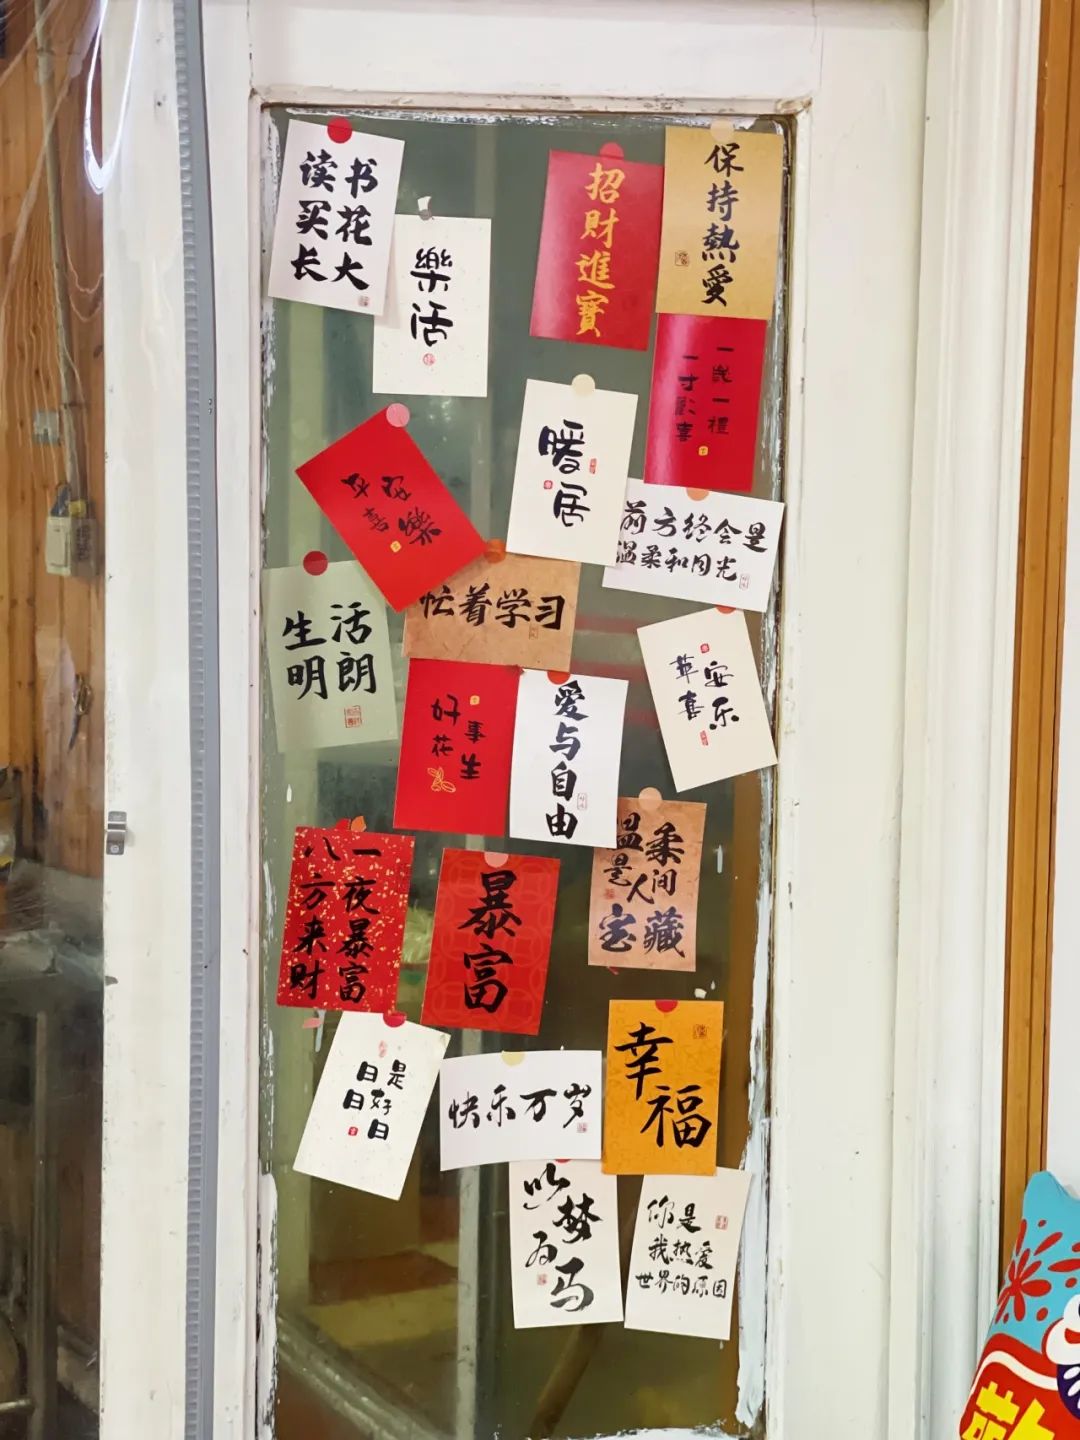 读书
买花
长大
樂活
招財進寶
保持熱愛
一歲一禮
一寸歡喜
暖居
平安
喜樂
前方终会是
温柔和月光
忙着学习
生活
明朗
苹安
喜乐
好事
花生
爱与自由
温柔
是人间
宝藏
一夜暴富
八方来财
暴富
幸福
日日
是好日
快乐万岁
以梦为马
你是
我热爱
世界的原因